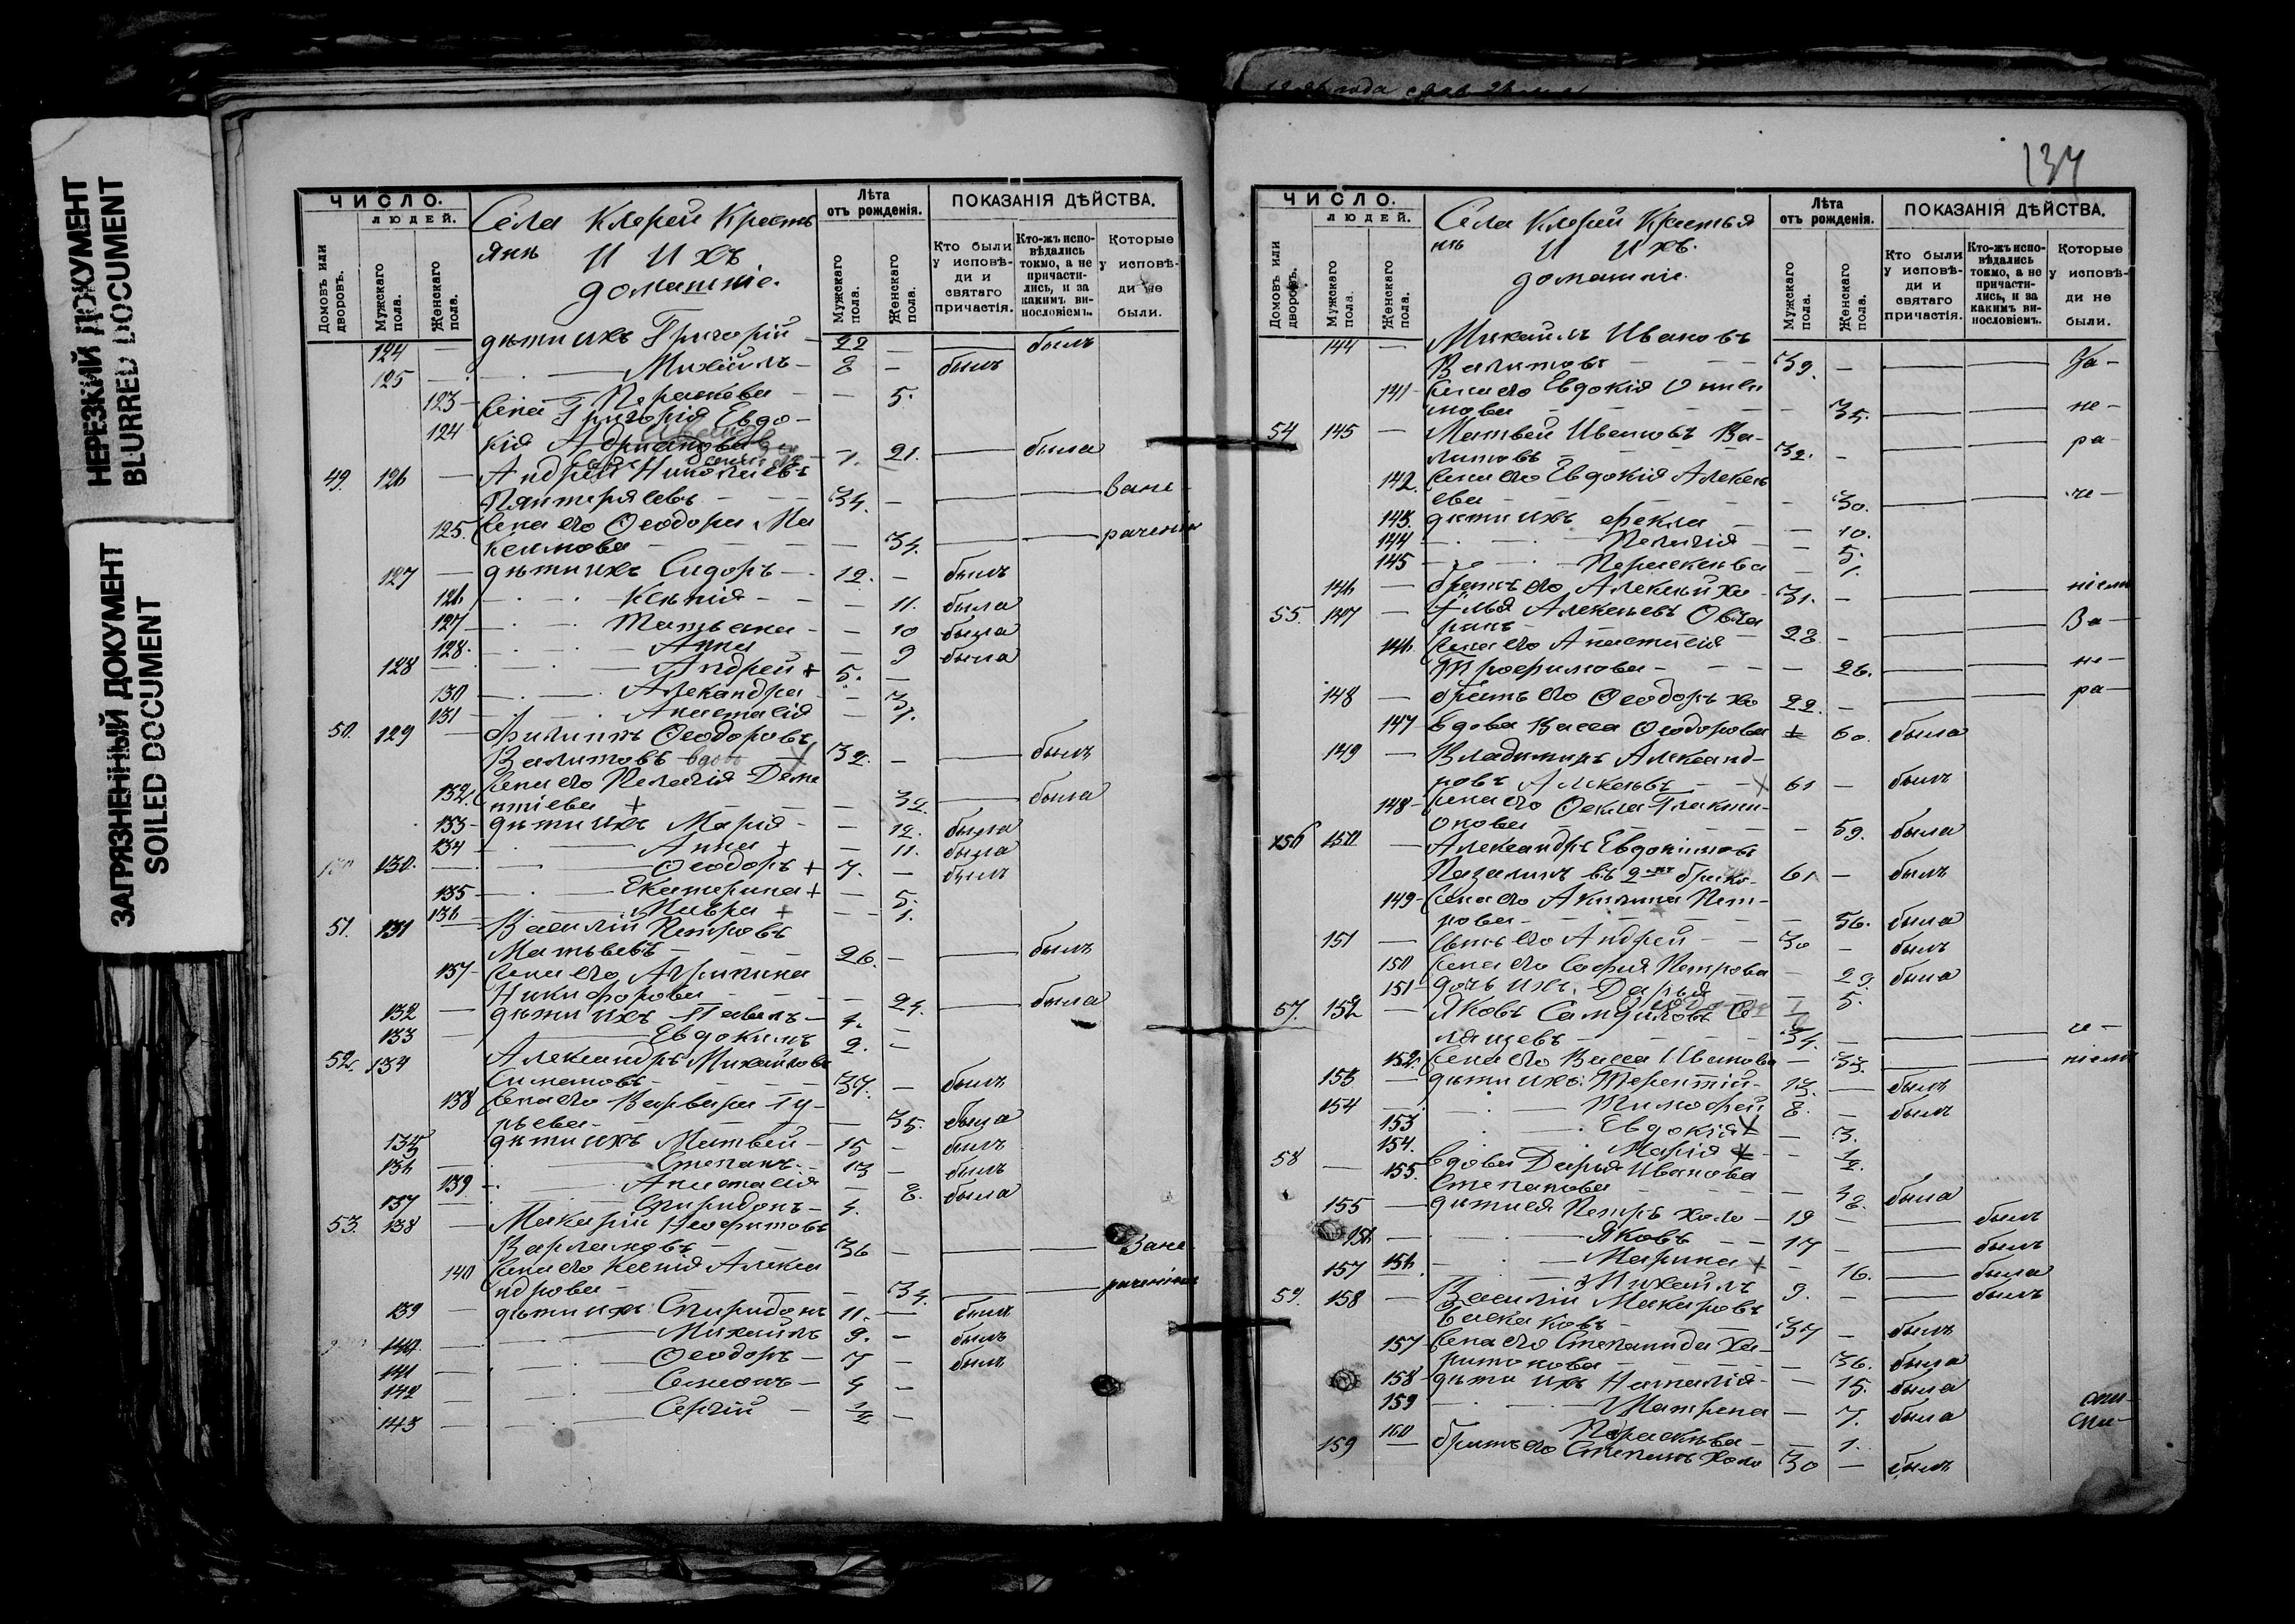 НЕРЕЗКИЙ ДОКУМЕНТ
BLURRED DOCUMENT
ЗАГРЯЗНЕННЫЙ ДОКУМЕНТ
SOILED DOCUMENT
ЧИСЛО.
ЛЮДЕЙ.
Домовъ или дворовъ.
Мужскаго пола.
Женскаго пола.
Села Клерей Кресть
янъ И Ихъ
домашніе.
Лѣта отъ рожденія.
Мужскаго пола.
Женскаго пола.
ПОКАЗАНІЯ ДѢЙСТВА.
Кто были у исповѣ-ди и святаго причастія.
Кто-жъ испо-вѣдались токмо, а не причасти-лись, и за какимъ ви-нословіемъ.
Которые у исповѣ-ди не были.
124 — дѣти ихъ Григорій — 22 — — былъ
125 — Михаилъ — 8 — былъ
123 — Параскева — — 5.
Жена Григорія Евдо-
124 кія — 21. — была
49. 126 — Андрей Николаевъ
34. — — — Зане
125. Жена его Ѳеодора Ма
ксимова — — 34. — — раченіи
127 — дѣти ихъ Сидоръ — 12. — былъ
126. Ксенія — — 11. была
127 Татьяна — — 10 была
128. Анна — 9 была
128 — Андрей + 5. —
130 Александра — 3
131 Анастасія — 1.
50. 129 — Филиппъ Ѳеодоровъ
Валитовъ вдов 32. — — былъ
132. Жена его Пелагія Деме
нтіева + — 32. — была
133 — дѣти ихъ Марія — — 12. была
134 Анна + — 11. была
130. — Ѳеодоръ + 7. — былъ
135 Екатерина + — 5.
136 Мавра + — 1.
51. 131 — Василій Петровъ
Матвѣевъ — 26. — — былъ
137 — Жена его Агрипина
Никифорова — 24. — была
132 — дѣти ихъ Павелъ — 4. —
133 — Евдокимъ 2. —
52. 134 Александръ Михайловъ
Симановъ — 37. — былъ
138 Жена его Варвара Гу-
рьева — — 35. была
135 дѣти ихъ Матвей — 15 — былъ
136 — Степанъ — 13 — былъ
139 — Анастасія — 8. была
137 — Спиридонъ — 4.
53. 138 — Макарій Неофитовъ
Варламовъ — 36 — — — Зане
140 Жена его Ксенія Алекса
ндрова — — 34. — — раченіи
139 — дѣти ихъ Спиридонъ 11. — былъ
140. — Михаилъ 9. — былъ
141 — Ѳеодоръ — 7 — былъ
142 — Семенъ — 4 —
143 — Сергій — 1/2 —
134
ЧИСЛО.
ЛЮДЕЙ.
Домовъ или дворовъ.
Мужскаго пола.
Женскаго пола.
Села Клерей Крестья
нъ И Ихъ
домашніе.
Лѣта отъ рожденія.
Мужскаго пола.
Женскаго пола.
ПОКАЗАНІЯ ДѢЙСТВА.
Кто были у исповѣ-ди и святаго причастія.
Кто-жъ испо-вѣдались токмо, а не причасти-лись, и за какимъ ви-нословіемъ.
Которые у исповѣ-ди не были.
144 — Михаилъ Ивановъ
Валитовъ — 39. — — — За —
141 — Жена его Евдокія
— 35. — — не —
54 145 — Матвей Ивановъ Ва-
литовъ — 32. — — — ра —
142. Жена его Евдокія Алексѣ
ева — — 30. — — че —
143. дѣти ихъ Фекла — — 10.
144 Пелагія — — 5.
145 Параскева — 1.
146 — братъ его Алексѣй хо — 31. — — — ніемъ
55. 147 — Илья Алексѣевъ Овча
ринъ — 28. — — — За —
146. Жена его Анастасія
Трофимова — — 26. — — не —
148 — братъ его Ѳеодоръ хо 22. — — — ра —
147 вдова Васса Ѳеодорова 60. была
149 — Владимиръ Александ-
ровъ Алексѣевъ — 61 — былъ
148 — Жена его Ѳекла
онова — 59. была
56 150 — Александръ Евдокимовъ
въ 2мъ брако. 61 — былъ
149 — Жена его Акилина Пет-
рова — — 56. была
151 — сынъ его Андрей — 30 — былъ
150 Жена его Софія Петрова — 29. была
151 — дочь ихъ Дарья — 5.
57. 152 — Яковъ
34. — — — че —
152. Жена его Васса Иванова — 33. — — ніемъ
153 — дѣти ихъ: Терентій — 13. — былъ
154 — Тимофей 8. — былъ
153 Евдокія — 3.
154. Марія — 1/2.
58 — 155. вдова Дарья Иванова
Степанова — — 48. была
155 — дѣти ея Петръ холо — 19 — — былъ
156 — Яковъ — 17 — — былъ
157 156 — Марина + — 16. — была
Михаилъ 9. — — былъ
59. 158 — Василій Макаровъ
37 — былъ
157 Жена его Степанида Ха-
ритонова — 36. была
158 — дѣти ихъ Наталія — — 15. была
159 Матрена — 7. была
160 Параскева — — 1.
159 — братъ его Степанъ холо 30 — былъ